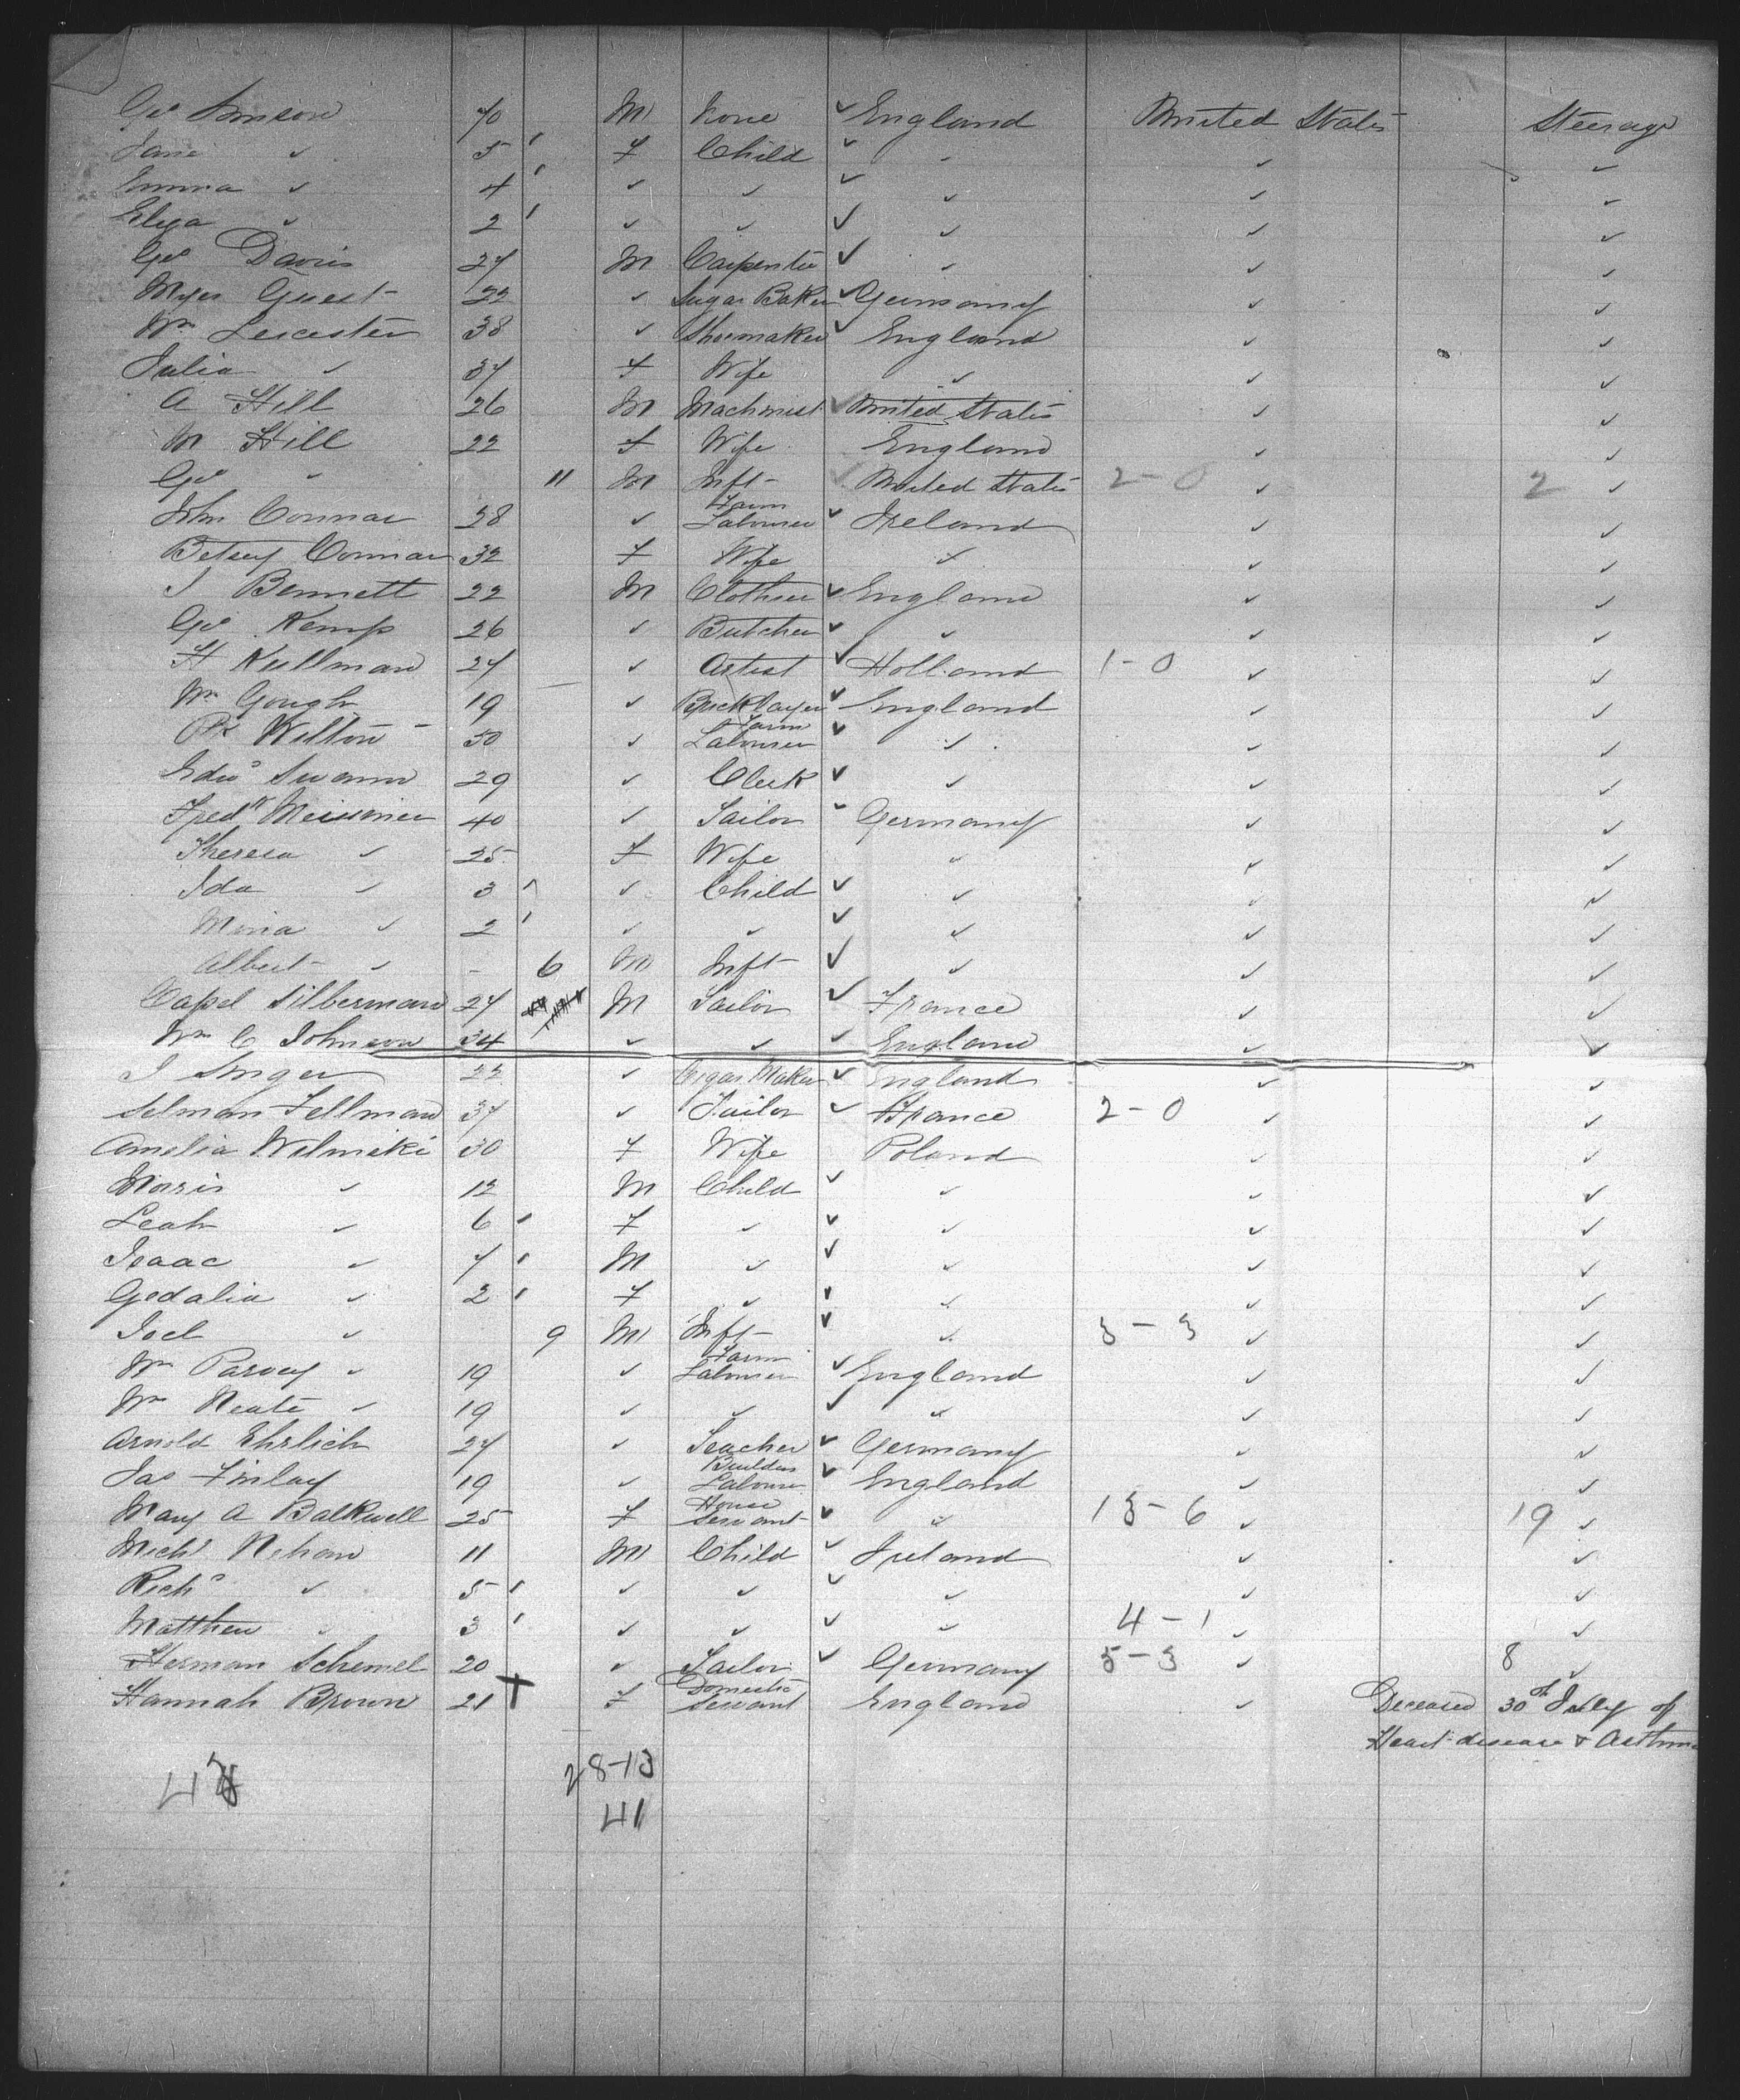 Geo 40 M None ✓ England United States Steerage
Jane ✓ 5 ' F Child ✓ ✓ ✓ ✓
Emma ✓ 4 ' ✓ ✓ ✓ ✓ ✓ ✓
Eliza ✓ 2 ' ✓ ✓ ✓ ✓ ✓ ✓
Geo Davis 27 M Carpenter ✓ ✓ ✓ ✓
Myer Guest 22 ✓ Sugar Baker ✓ Germany ✓ ✓
Wm Leicester 38 ✓ Shoemaker ✓ England ✓ ✓
Julia ✓ 37 F Wife ✓ ✓ ✓
A Hill 26 M Machinist ✓ United States ✓ ✓
M Hill 22 F Wife England ✓ ✓
Geo " 11 M Inft ✓ United States 2-0 ✓ 2 ✓
John Connar 28 ✓ Farm Labourer ✓ Ireland ✓ ✓
Betsey Connar 32 F Wife ✓ ✓ ✓
J Bennett 22 M Clothier ✓ England ✓ ✓
Geo Kemp 26 ✓ Butcher ✓ ✓ ✓ ✓
H Kullman 27 ✓ Artist ✓ Holland 1-0 ✓ ✓
Wm Gough 19 ✓ Bricklayer ✓ England ✓ ✓
Wilton 30 ✓ Farm Labourer ✓ ✓ ✓ ✓
Edwd Swann 29 ✓ Clerk ✓ ✓ ✓ ✓
Fredk 40 ✓ Tailor ✓ Germany ✓ ✓
Theresa ✓ 25 F Wife ✓ ✓ ✓
Ida ✓ 3 ' ✓ Child ✓ ✓ ✓ ✓
Mina ✓ 2 ' ✓ ✓ ✓ ✓ ✓ ✓
Albert ✓ - 6 M Inft ✓ ✓ ✓ ✓
Capel Silberman 27 M Tailor ✓ France ✓ ✓
Wm C Johnson 34 ✓ ✓ ✓ England ✓ ✓
J Singer 22 ✓ Cigar Maker ✓ England ✓ ✓
Selman Fellman 37 ✓ Tailor ✓ France 2-0 ✓ ✓
Amelia Wilmski 30 F Wife Poland ✓ ✓
Morris ✓ 12 M Child ✓ ✓ ✓ ✓
Leah ✓ 6 ' F ✓ ✓ ✓ ✓ ✓
Isaac ✓ 4 ' M ✓ ✓ ✓ ✓ ✓
Gedalia ✓ 2 ' F ✓ ✓ ✓ ✓ ✓
Joel ✓ 9 M Inft ✓ ✓ 3-3 ✓ ✓
Wm Parvey ✓ 19 ✓ Farm Labourer ✓ England ✓ ✓
Wm Neate ✓ 19 ✓ ✓ ✓ ✓ ✓ ✓
Arnold Ehrlich 27 ✓ Teacher ✓ Germany ✓ ✓
Jas Finlay 19 ✓ Builders Labourer ✓ England ✓ ✓
Mary A Balkwell 25 F House Servant ✓ ✓ 13-6 ✓ 19 ✓
Michl Nehan 11 M Child ✓ Ireland ✓ ✓
Richd ✓ 5 ' ✓ ✓ ✓ ✓ ✓ ✓
Matthew ✓ 3 ' ✓ ✓ ✓ ✓ 4-1 ✓ ✓
Herman Schemel 20 ✓ Tailor ✓ Germany 5-3 ✓ 8 ✓
Hannah Brown 21 + F Domestic Servant England ✓ Deceased 30th July of
Heart disease & Asthma
28-13
41